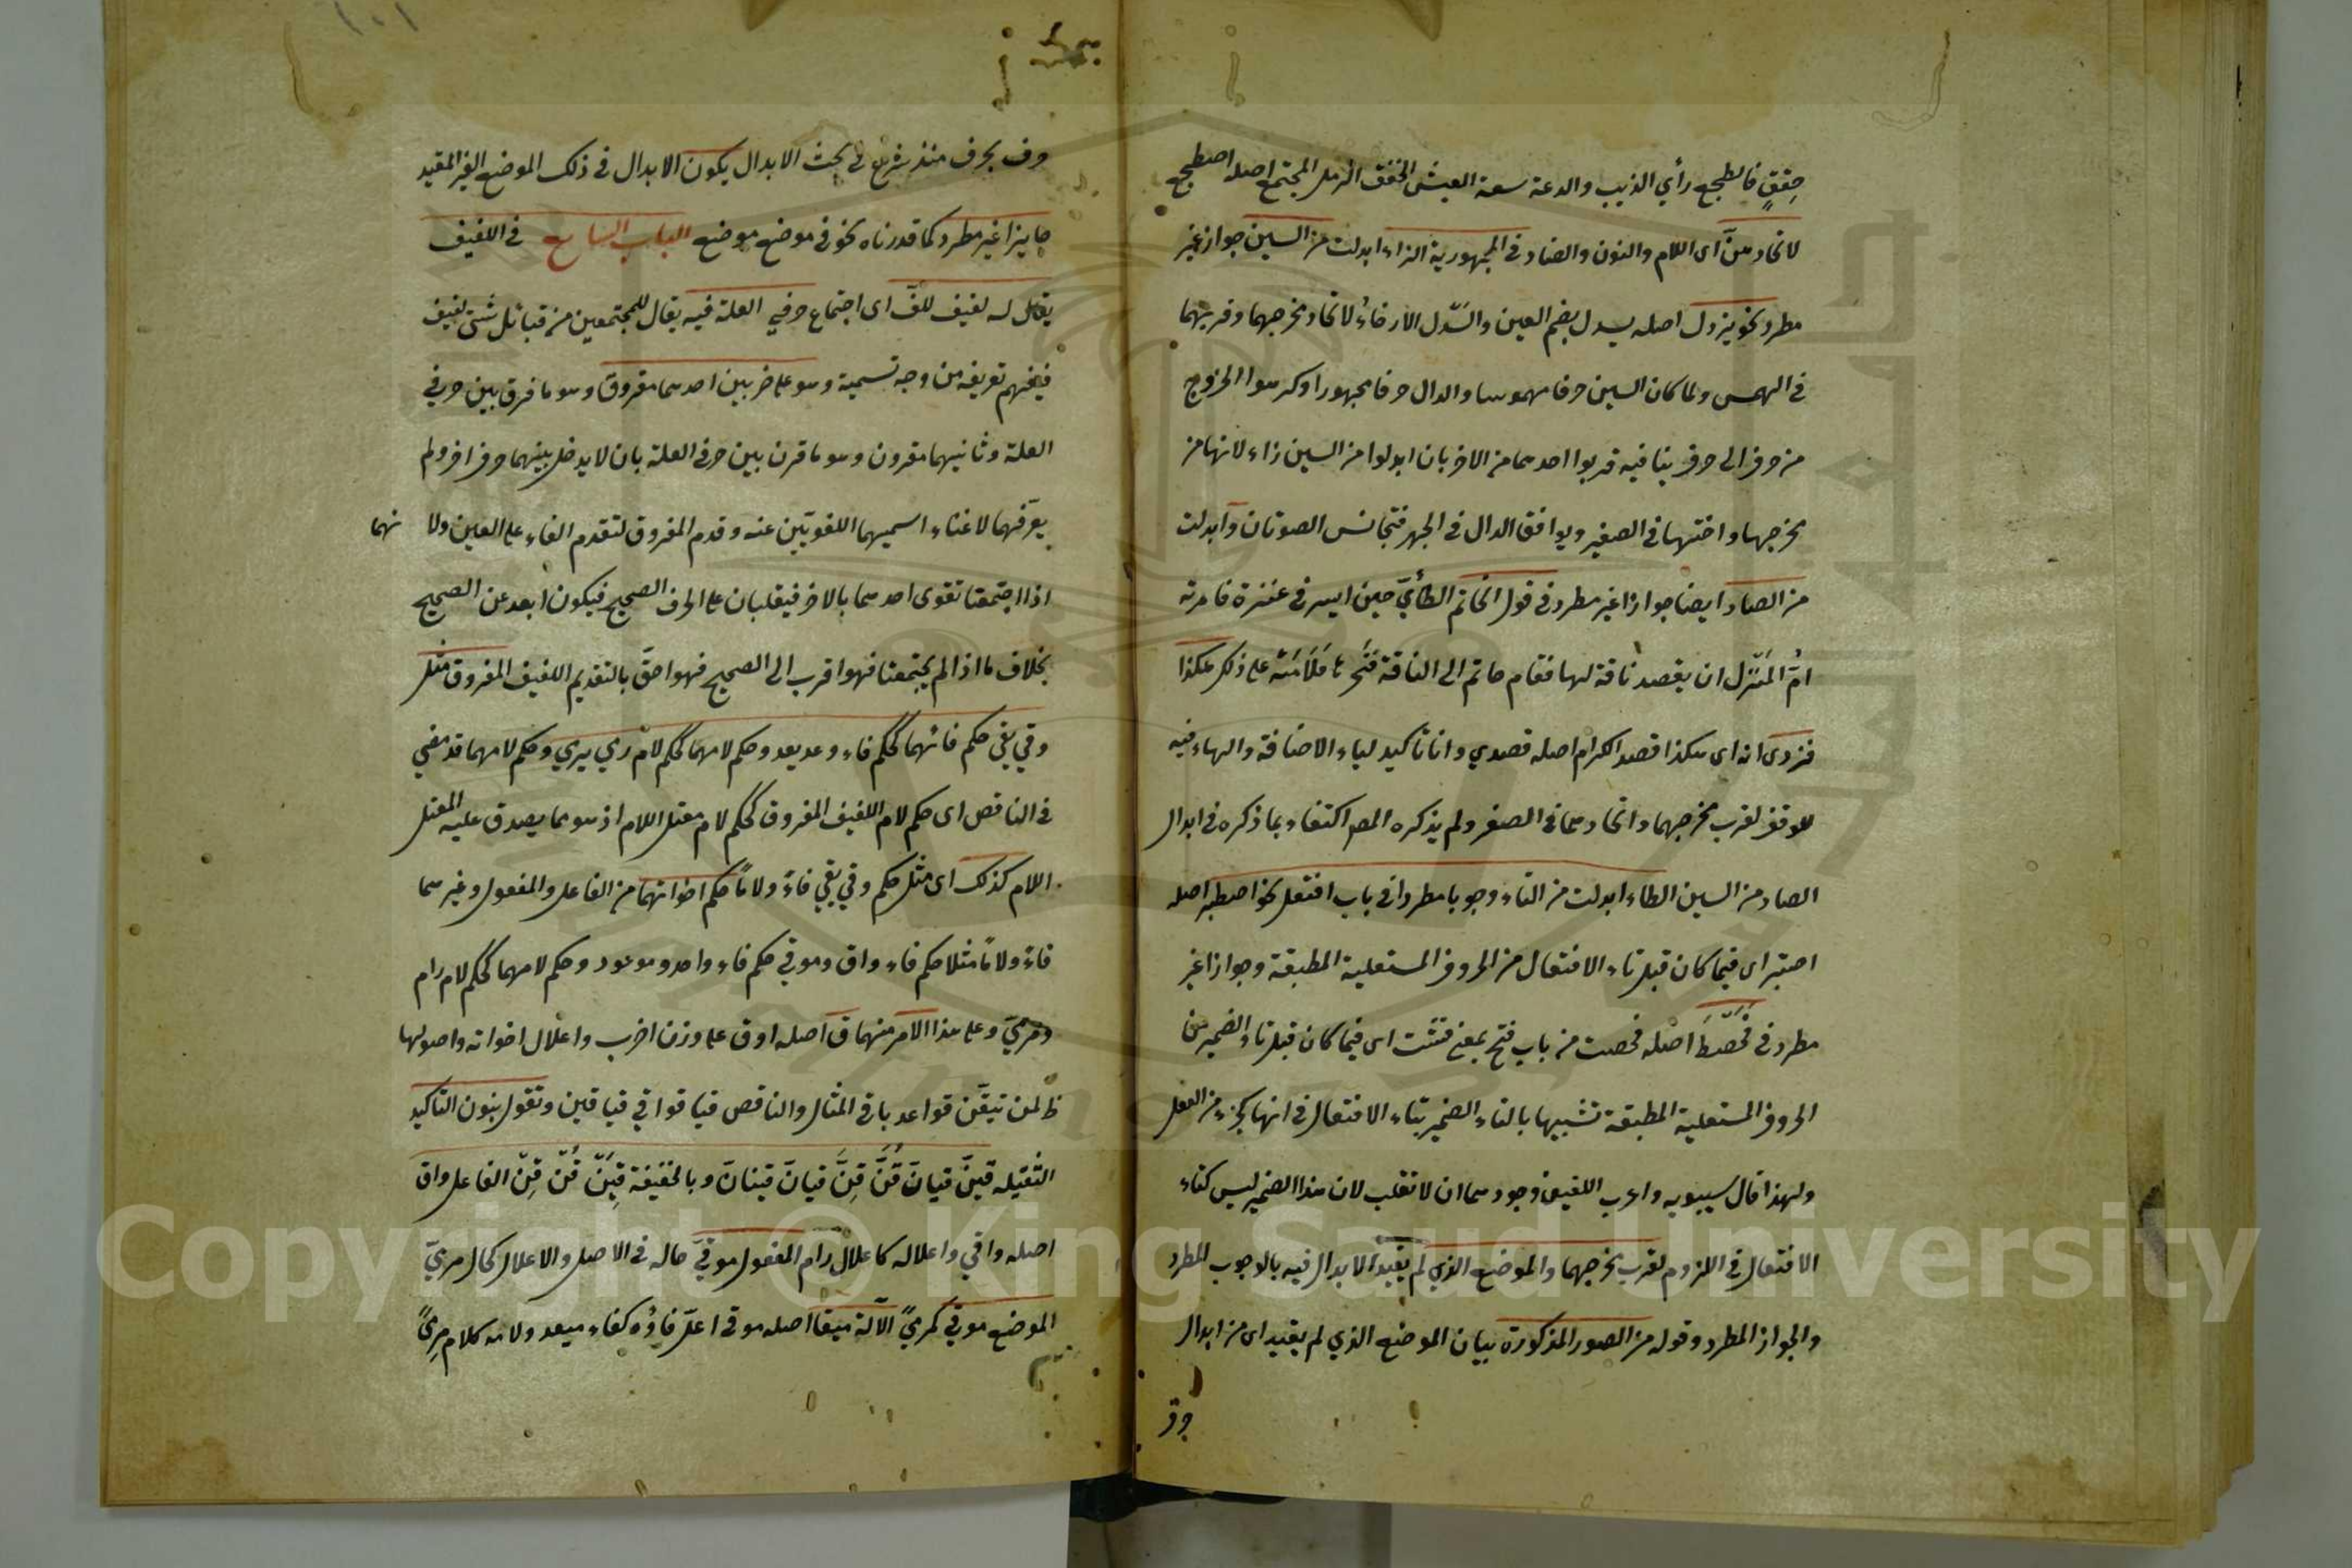 حِقْفٍ فالطجع رأي الذيب والدعة سعة العيش الحقف الرمل المجتمع اصله اضطجع
لاتحادهن اى اللام والنون والضاد في المجهورية الزاء ابدلت من السين جوازا غير
مطرد نحو يزدل اصله يسدل بضم العين والسَّدل الارخاءُ لاتحاد مخرجهما وقربهما
في الهمس ولما كان السين حرفا مهموسا والدال حرفا مجهورا وكرهوا الخروج
من حرف الى حرف ينافيه قربوا احدهما من الاخر بان ابدلوا من السين زاء لانها من
مخرجها واختها في الصفير ويوافق الدال في الجهر فتجانس الصوتان وابدلت
من الصاد ايضا جوازا غير مطرد في قول الحاتم الطائيّ حين اسر في عنزة فامرته
امّ المنزل ان يفصد ناقة لها فقام حاتم الى الناقة فنحرها فلامته على ذلك هكذا
فزدى انه اى هكذا فصد الكرام اصله فصدي وانا تأكيد لياء الاضافة والهاء فيه
للوقف لقرب مخرجهما واتحادهما في الصفير ولم يذكره المص اكتفاء بما ذكره في ابدال
الصاد من السين الطاء ابدلت من التاء وجوبا مطردا في باب افتعل نحو اصطبر اصله
اصتبر اى فيما كان قبل تاء الافتعال من الحروف المستعلية المطبقة وجوازا غير
مطرد في فَحَصْطَ اصله فحصت من باب فتح بمعنى فتشت اى فيما كان قبل تاء الضمير من
الحروف المستعلية المطبقة تشبيها بالتاء الضمير بتاء الافتعال في انها كجزء من الفعل
ولهذا قال سيبويه واعرب اللغتين وجودهما ان لا تقلب لان هذا الضمير ليس كتاء
الافتعال في اللزوم لقرب مخرجهما والموضع الذي لم يقيد الابدال فيه بالوجوب المطرد
والجواز المطرد وقوله من الصور المذكورة بيان الموضع الذي لم يقيد اى من ابدال
حرف
حرف بحرف منذ شرع في بحث الابدال يكون الابدال في ذلك الموضع الغير المقيد
جايزا غير مطرد كما قدرناه نحو في موضع موضع الباب السابع في اللفيف
يقال له لفيف للفّ اى اجتماع حرفي العلة فيه يقال للمجتمعين من قبائل شتى لفيف
فيفهم تعريفه من وجه تسمية وهو على ضربين احدهما مفروق وهو ما فرق بين حرفي
العلة وثانيهما مقرون وهو ما قرن بين حرفي العلة بان لا يدخل بينهما حرف اخر ولم
يعرّفهما لاغناء اسميهما اللغويّين عنه وقدم المفروق لتقدم الفاء على العين ولا نهما
اذا اجتمعتا تقوى احدهما بالاخر فيغلبان على الحرف الصحيح فيكون ابعد عن الصحيح
بخلاف ما اذا لم يجتمعتا فهو اقرب الى الصحيح فهو احقّ بالتقديم اللفيف المفروق مثل
وقي يقي حكم فائهما كحكم فاء وعد يعد وحكم لامهما كحكم لام رمي يرمي وحكم لامهما قد مضي
في الناقص اى حكم لام اللفيف المفروق كحكم لام معتل اللام اذ هو مما يصدق عليه المعتل
اللام كذلك اى مثل حكم وقي يقي فاءً ولامًا حكم اخواتهما من الفاعل والمفعول وغيرهما
فاءً ولامًا مثلا حكم فاء واق وموقي حكم فاء واعد وموعود وحكم لامهما كحكم لام رام
ومرميّ وعلى هذا الامر منهما ق اصله اوق على وزن اضرب واعلال اخواته واصولها
ظ لمن تيقّن قواعد بابي المثال والناقص قيا قوا قي قيا قين وتقول بنون التأكيد
الثقيله قينَّ قيانّ قُنَّ قِنَّ قيانّ قينانّ وبالخفيفة قِيَنْ قُنْ قِنْ الفاعل واق
اصله واقي واعلاله كاعلال رام المفعول موقيّ حاله في الاصل والاعلال كحال مرميّ
الموضع موقى كمرمىً الآلة ميقا اصله موقى اعل فاؤه كفاء ميعد ولامه كلام مرمىً
Copyright © King Saud University